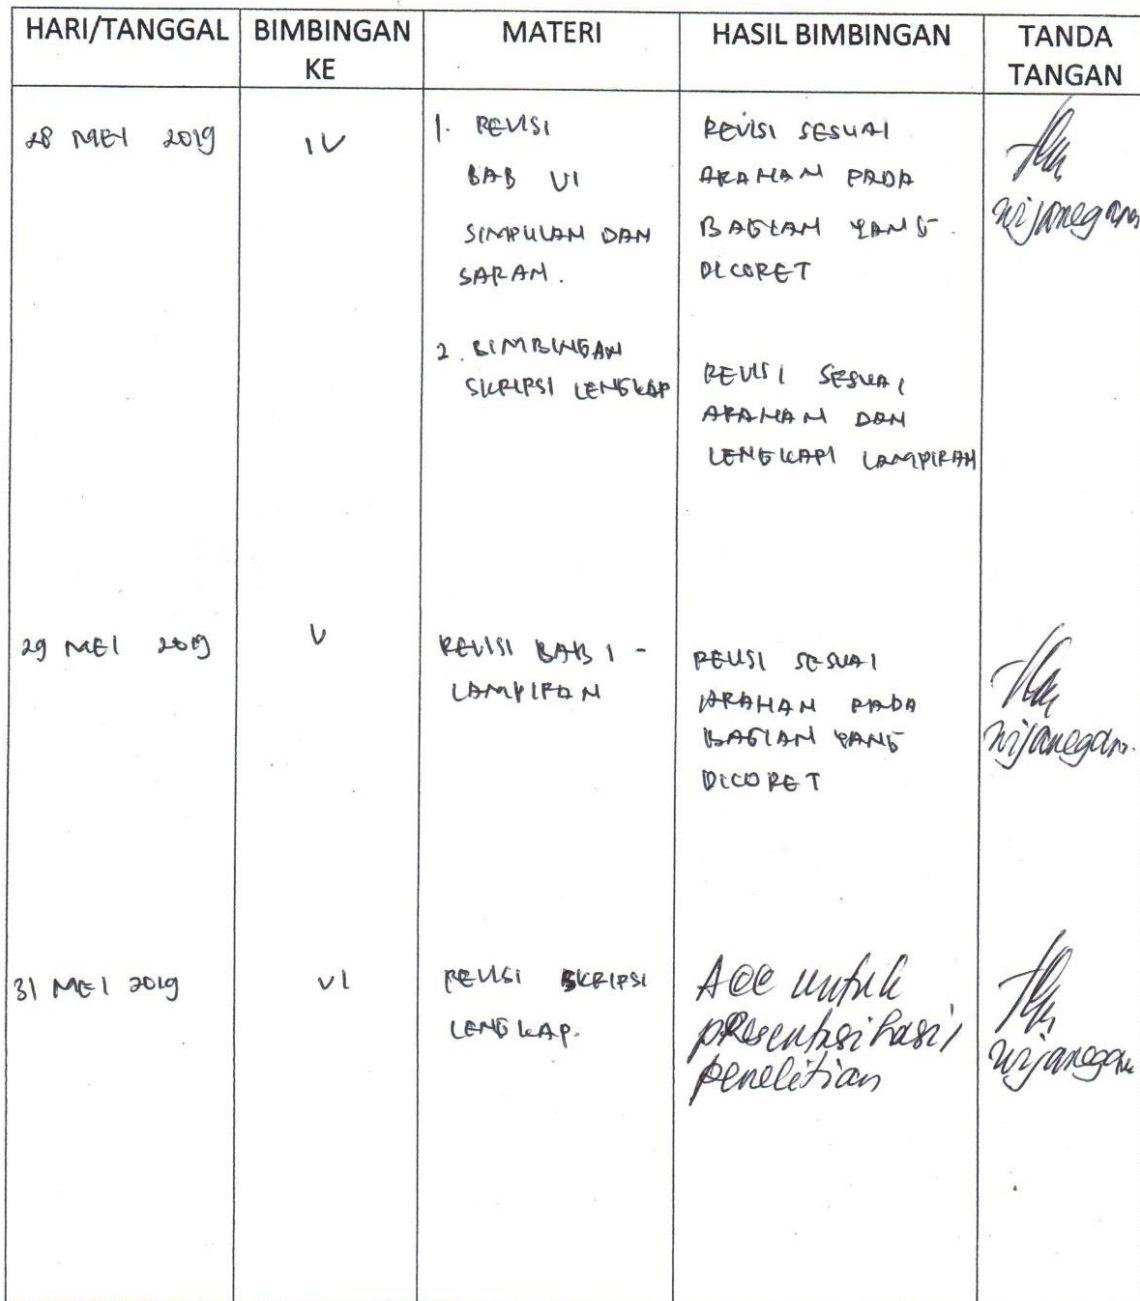 HARI/TANGGAL BIMBINGAN KE MATERI HASIL BIMBINGAN TANDA TANGAN
28 MEI 2019
IV
1. REVISI
BAB VI
SIMPULAN DAN
SARAN.
2. BIMBINGAN
SKRIPSI LENGKAP
REVISI SESUAI
ARAHAN PADA
BAGIAN YANG
DICORET
REVISI SESUAI
ARAHAN DAN
LENGKAPI LAMPIRAN
Wijanegara
29 MEI 2019
V
REVISI BAB I -
LAMPIRAN
REVISI SESUAI
ARAHAN PADA
BAGIAN YANG
DICORET
Wijanegara
31 MEI 2019
VI
REVISI SKRIPSI
LENGKAP.
ACC untuk
presentasi hasil
penelitian
Wijanegara